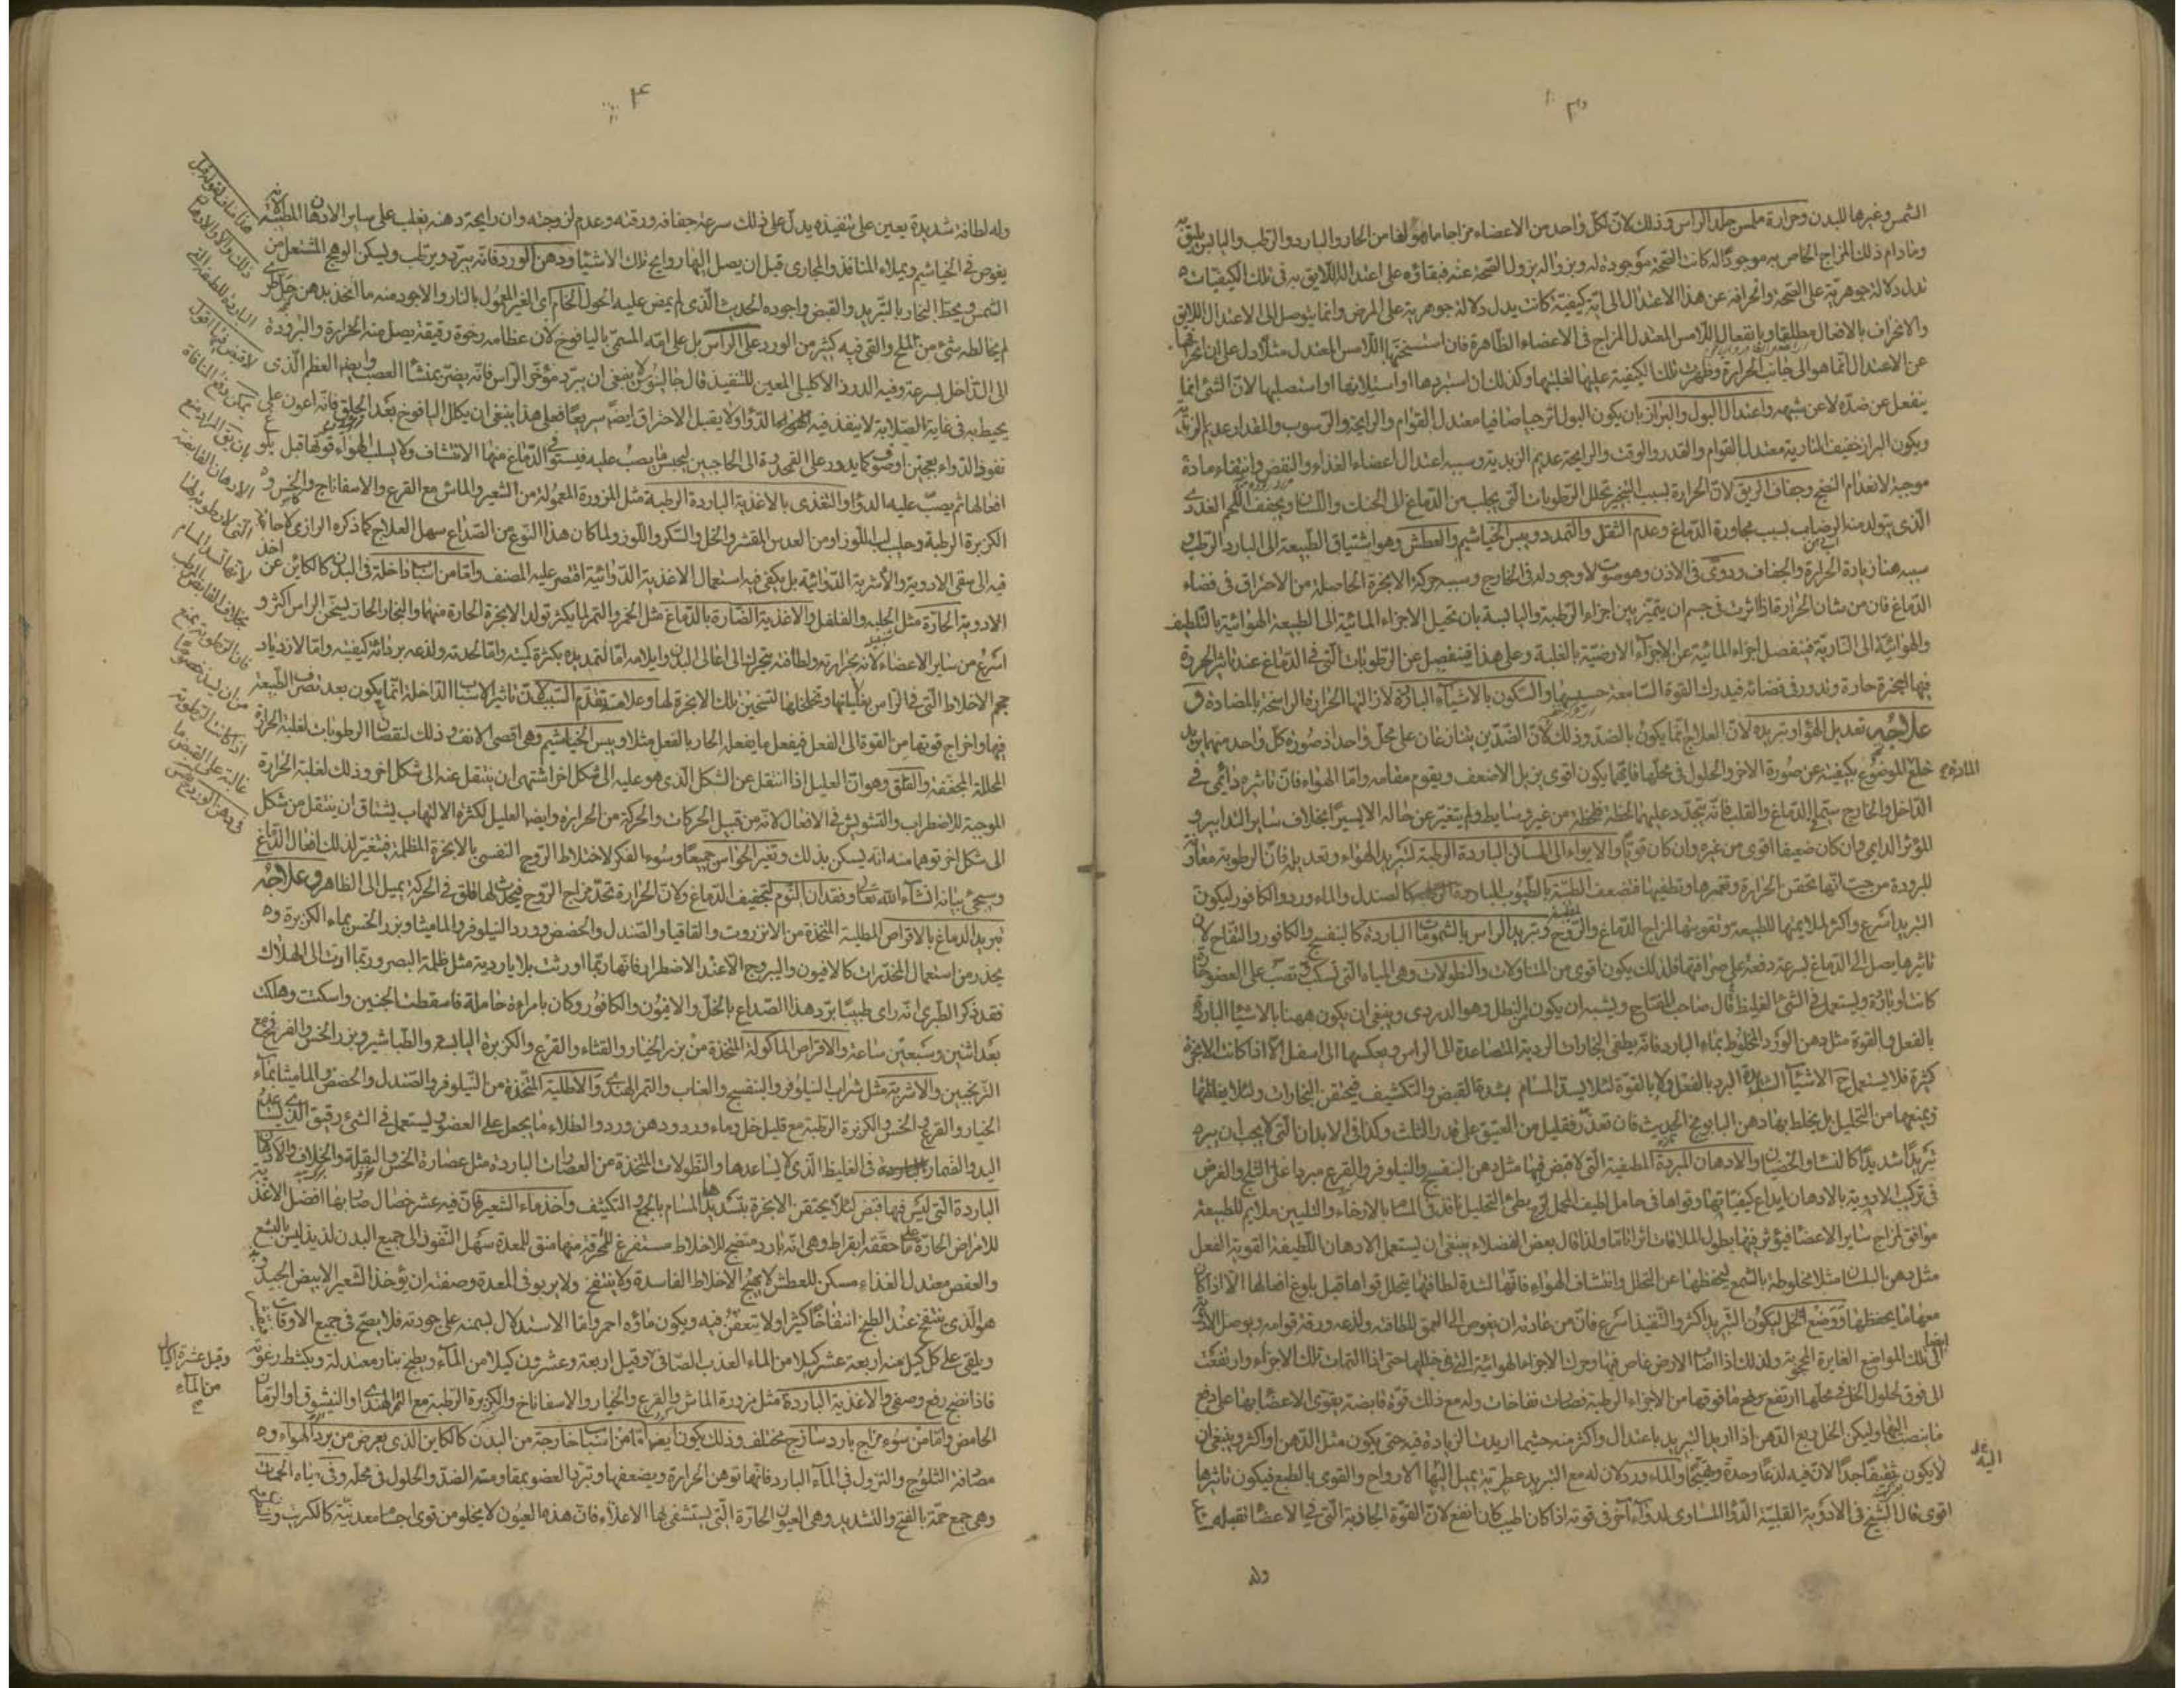 الشمس وغيرها للبدن وحرارة ملمس جلد الراس وذلك لان لكل واحد من الاعضاء مزاجا ما هو لها من الحار والبارد والرطب واليابس يليق به
وما دام ذلك المزاج الخاص به موجودا له كانت الصحة موجودة له وبزواله يزول الصحة عنه فبقاؤه على اعتداله اللايق به فى تلك الكيفيات
يدل دلالة جوهرية على الصحة وانحرافه عن هذا الاعتدال الى اية كيفية كانت يدل دلالة جوهرية على المرض وانما يتوصل الى الاعتدال اللايق
والانحراف بالافعال مطلقا وبانفعال اللامس المعتدل المزاج فى الاعضاء الظاهرة فان استسخنها اللامس المعتدل مثلا دل على ان انحرافها
عن الاعتدال انما هو الى جانب الحرارة وظهرت تلك الكيفية عليها لغلبتها وكذلك ان استبردها او استلانها او استصلبها لان الشئ انما
ينفعل عن ضده لا عن شبهه واعتدال البول والبراز بان يكون البول اترجيا صافيا معتدل القوام والرايحة والرسوب والمقدار عديم الزبد
ويكون البراز خفيف النارية معتدل القوام والقدر والوقت والرايحة عديم الزبدية وسببه اعتدال اعضاء الغذاء والنفض وانتفاء مادة
موجبة لانعدام النضج وجفاف الريق لان الحرارة بسبب التبخير تحلل الرطوبات التى يحلب من الدماغ الى الحنك واللسان ويجفف اللحم الغددى
الذى يتولد منه الرضاب بسبب مجاورة الدماغ وعدم الثقل والتمدد ويبس الخياشيم والعطش وهو اشتياق الطبيعة الى البارد الرطب و
سببه هنا زيادة الحرارة والجفاف ودوى فى الاذن وهو صوت لا وجود له فى الخارج وسببه حركة الابخرة الحاصلة من الاحتراق فى فضاء
الدماغ فان من شان الحرارة اذا اثرت فى جسم ان يتميز بين اجزاء الرطبة واليابسة بان تحيل الاجزاء المائية الى الطبيعة الهوائية بالتلطيف
والهوائية الى النارية فينفصل اجزاء المائية عن الاجزاء الارضية بالغلبة وعلى هذا فينفصل عن الرطوبات التى فى الدماغ عند تاثير الحرارة
فيها ابخرة حارة وتدور فى فضائه فيدرك القوة السامعة حسيسها والسكون بالاشياء الباردة لازالتها الحرارة الراسخة بالمضادة و
علاجه تعديل الهواء وتبريده لان العلاج انما يكون بالضد وذلك لان الضدين يتنازعان على محل واحد اذ صورة كل واحد منهما يريد
خلع الموضوع بكيفيته عن صورة الاخر والحلول فى محلها فايهما يكون اقوى يزيل الاضعف ويقوم مقامه واما الهواء فان تاثيره دائمى فى
الداخل والخارج سيما الدماغ والقلب فانه يتجدد عليهما لحظة فلحظة من غير وسايط ولم يتغير عن حاله الا يسيرا بخلاف ساير التدابير و
المؤثر الدايم وان كان ضعيفا اقوى من غيره وان كان قويا والايواء الى المساكن الباردة الرطبة لتبريد الهواء وتعديله فان الرطوبة معاونة
للبرودة من حيث انها تحقن الحرارة وتغمرها وتطفيها فتضعف الطيبة بالطيوب الباردة كالصندل والماء ورد والكافور ليكون
التبريد اسرع واكثر لملايمتها للطبيعة وتقويتها لمزاج الدماغ والروح وتبريد الراس بالشمومات الباردة كالبنفسج والكافور والتفاح لان
تاثيرها يصل الى الدماغ بسرعة دفعة على صرافتها فلذلك يكون اقوى من المتناولات والنطولات وهى المياه التى تسكب وتصب على العضو حارة
كانت او باردة ويستعمل فى الشئ الغليظ قال صاحب المفتاح ويشبه ان يكون من النطل وهو الدردى وينبغى ان يكون ههنا بالاشياء الباردة
بالفعل والقوة مثل دهن الورد المخلوط بماء البارد فانه يطفى البخارات الردية المتصاعدة الى الراس ويعكسها الى اسفل الا اذا كانت الابخرة
كثيرة فلا يستعمل ح الاشياء الشديدة البرد بالفعل ولا بالقوة لئلا يسد المسام بشدة القبض والتكثيف فيحتقن البخارات ولئلا يغلظها
ويمنعها من التحليل بل يخلط بها دهن البابونج الحديث فان تعذر فقليل من العتيق على قدر الثلث وكذا فى الابدان التى لا يجب ان يبرد
تبريدا شديدا كالنساء والخصيان والادهان المبردة المطفية التى لا قبض فيها مثل دهن البنفسج والنيلوفر والقرع مبردا على الثلج والغرض
فى تركيب الادوية بالادهان ايداع كيفياتها وقواها فى حامل لطيف المحمل لزج بطئ التحليل نافذ فى المسام بالارخاء والتليين ملايم للطبيعة
موافق لمزاج ساير الاعضاء فيؤثر فيها بطول الملاقات اثرا تاما ولذا قال بعض الفضلاء ينبغى ان يستعمل الادهان اللطيفة القوية الفعل
مثل دهن البلسان مثلا مخلوطة بالشمع ليحفظها عن التحلل وانتشاف الهواء فانها لشدة لطافتها يتحلل قواها قبل بلوغ افعالها الا اذا كان
معها ما يحفظها ووضع الخل ليكون التبريد اكثر والتنفيذ اسرع فان من عادته ان يغوص الى العمق للطافته ولذعه ورقة قوامه ويوصل الادوية ايضا
الى تلك المواضع الغايرة المحجوبة ولذلك اذا اصاب الارض غاص فيها وحرك الاجزاء الهوائية التى فى خللها حتى اذا التهات تلك الاجزاء وارتفعت
الى فوق لحلول الخل فى محلها ارتفع برفع ما فوقها من الاجزاء الرطبة فصارت نفاخات وله مع ذلك قوة قابضة يقوى الاعضاء بها على دفع
ما ينصب اليها وليكن الخل ربع الدهن اذا اريد التبريد باعتدال واكثر منه حيثما اريدت الزيادة فيه حتى يكون مثل الدهن او اكثر وينبغى ان
لا يكون ثقيفا جدا لان فيه لذعا وحدة وتهيجا والماء ورد لان له مع التبريد عطرية يميل اليها الارواح والقوى بالطبع فيكون تاثيرها
اقوى قال الشيخ فى الادوية القلبية الدواء المساوى لدواء آخر فى قوته اذا كان اطيب كان انفع لان القوة الجاذبة التى فى الاعضاء تقبله
وله
وله لطافة شديدة يعين على تنفيذه يدل على ذلك سرعة جفافه ورقته وعدم لزوجته وان رايحة دهنه يغلب على ساير الادهان المطيبة لانه
يغوص فى الخياشيم ويملاء المنافذ والمجارى قبل ان يصل اليها روايح تلك الاشياء ودهن الورد فانه يبرد ويرطب ويسكن الوهج المشتعل من
الشمس ويحط البخار بالتبريد والقبض واجوده الحديث الذى لم يمض عليه الحول الخام اى الغير المعمول بالنار والاجود منه ما اتخذ بدهن حل لم
يخالطه شئ من الملح والقى فيه كثير من الورد على الراس بل على امّه المسمى باليافوخ لان عظامه رخوة رقيقة يصل منه الحرارة والبرودة
الى الداخل بسرعة وفيه الدروز الاكليلى المعين للتنفيذ قال جالينوس لا ينبغى ان يبرد مؤخر الراس فانه يضر بمنشأ العصب وايضا العظم الذى
يحيط به فى غاية الصلابة لا ينفذ فيه الدواء ولا يقبل الاحتراق ايضا سريعا فعلى هذا ينبغى ان يكلل اليافوخ بعد الحلق فانه اعون على
نفوذ الدواء بعجين او صوف كما يدور على القمحدوة الى الحاجبين ليحبس ما يصب عليه فيستوفى الدماغ منها الانتشاف ولا يسلب الهواء قوتها قبل بلوغ
افعالها ثم يصب عليه الدواء والتغذى بالاغذية الباردة الرطبة مثل المزورة المعمولة من الشعير والماش مع القرع والاسفاناج والخس و
الكزبرة الرطبة وحليب لب اللوز او من العدس المقشر والخل والسكر واللوز ولما كان هذا النوع من الصداع سهل العلاج كما ذكره الرازى لا حاجة
فيه الى سقى الادوية والاشربة الدوائية بل يكفى فيه استعمال الاغذية الدوائية اقتصر عليه المصنف واما من اسباب داخلة فى البدن كالكاين عن اخذ
الادوية الحارة مثل الحلبة والفلفل والاغذية الضارة بالدماغ مثل الخمر والتمر لما يكثر تولد الابخرة الحارة منها والبخار الحار يسخن الراس اكثر و
اسرع من ساير الاعضاء لانه بحرارته ولطافته يتحرك الى اعالى البدن وايلامه اما لتمديده بكثرة كميته واما لحدته ولذعه برداءة كيفيته واما لازدياد
حجم الاخلاط التى فى الراس بغليانها وتخلخلها لتسخين تلك الابخرة لها وعلامته تقدم السبب لان تاثير الاسباب الداخلة انما يكون بعد تصرف الطبيعة
فيها واخراج قوتها من القوة الى الفعل فيفعل ما يفعله الحار بالفعل مثلا ويبس الخياشيم وهى اقصى الانف وذلك لنقصان الرطوبات لغلبة الحرارة
المحللة المجففة والقلق وهو ان العليل اذا انتقل عن الشكل الذى هو عليه الى شكل اخر اشتهى ان ينتقل عنه الى شكل اخر وذلك لغلبة الحرارة
الموجبة للاضطراب والتشويش فى الافعال لانه من قبيل الحركات والحركة من الحرارة وايضا العليل لكثرة الالتهاب يشتاق ان ينتقل من شكل
الى شكل اخر توهما منه انه يسكن بذلك وتغير الحواس جميعا وسوء الفكر لاختلاط الروح النفسى بالابخرة المظلمة فيتغير لذلك افعال الدماغ
وسيجئ بيانه انشاء الله تعالى وفقدان النوم لتجفيف الدماغ ولان الحرارة تحد مزاج الروح فيحدث لها قلق فى الحركة يميل الى الظاهر وعلاجه
تبريد الدماغ بالاقراص المطلية المتخذة من الانزروت والقاقيا والصندل والحضض وورد النيلوفر والماميثا وبزر الخس بماء الكزبرة و
يحذر من استعمال المخدرات كالافيون واليبروج الا عند الاضطرار فانها ربما اورثت بلايا ردية مثل ظلمة البصر وربما ادت الى الهلاك
فقد ذكر الطبرى انه راى طبيبا برد هذا الصداع بالخل والافيون والكافور وكان بامراة حاملة فاسقطت الجنين واسكتت وهلكت
بعد اثنين وسبعين ساعة والاقراص الماكولة المتخذة من بزر الخيار والقثاء والقرع والكزبرة اليابسة والطباشير وبزر الخس والفرفخ مع
الترنجبين والاشربة مثل شراب النيلوفر والبنفسج والعناب والتمر الهندى والاطلية المتخذة من النيلوفر والصندل والحضض والماميثا بماء
الخيار والقرع والخس والكزبرة الرطبة مع قليل خل وماء ورد ودهن ورد والطلاء ما يجعل على العضو ويستعمل فى الشئ رقيق الذى يساعد
اليد والضماد فى الغليظ الذى لا يساعدها والنطولات المتخذة عن العصارات الباردة مثل عصارة الخس والبقلة والخلاف والادهان
الباردة التى ليس فيها قبض لئلا يحتقن الابخرة بتسديدها المسام بالجمع والتكثيف واخذ ماء الشعير فان فيه عشر خصال صار بها افضل الاغذية
للامراض الحارة على ما حققه ابقراط وهى انه بارد منضج للاخلاط مستفرغ للمحرقة منها منق للمعدة سهل النفوذ الى جميع البدن لذيذ ليس بالبشع
والعفص معتدل الغذاء مسكن للعطش لا يهيج الاخلاط الفاسدة ولا ينتفخ ولا يربو فى المعدة وصفته ان يؤخذ الشعير الابيض الجيد و
هو الذى ينتفخ عند الطبخ انتفاخا كثيرا ولا يتعفن فيه ويكون ماؤه احمر واما الاستدلال بسمنه على جودته فلا يصح فى جميع الاوقات
ويلقى على كل كيل منه اربعة عشر كيلا من الماء العذب الصافى وقيل اربعة وعشرون كيلا من الماء ويطبخ بنار معتدلة ويكشط رغوته
فاذا نضج رفع وصفى والاغذية الباردة مثل مزورة الماش والقرع والخيار والاسفاناخ والكزبرة الرطبة مع التمر الهندى او النيشوق او الرمان
الحامض واما من سوء مزاج بارد ساذج مختلف وذلك يكون ايضا اما من اسباب خارجة من البدن كالكاين الذى يعرض من برد الهواء و
مصادفة الثلوج والنزول فى الماء البارد فانها توهن الحرارة ويضعفها وتبرد العضو بمقاومته الضد والحلول فى محله وفى مياه الحمات
وهى جمع حمة بالفتح والتشديد وهى العيون الحارة التى يستشفى بها الاعلاء فان هذه العيون لا يخلو من قوى اجساد معدنية كالكبريت و
وقيل عشرة اكيال
من الماء